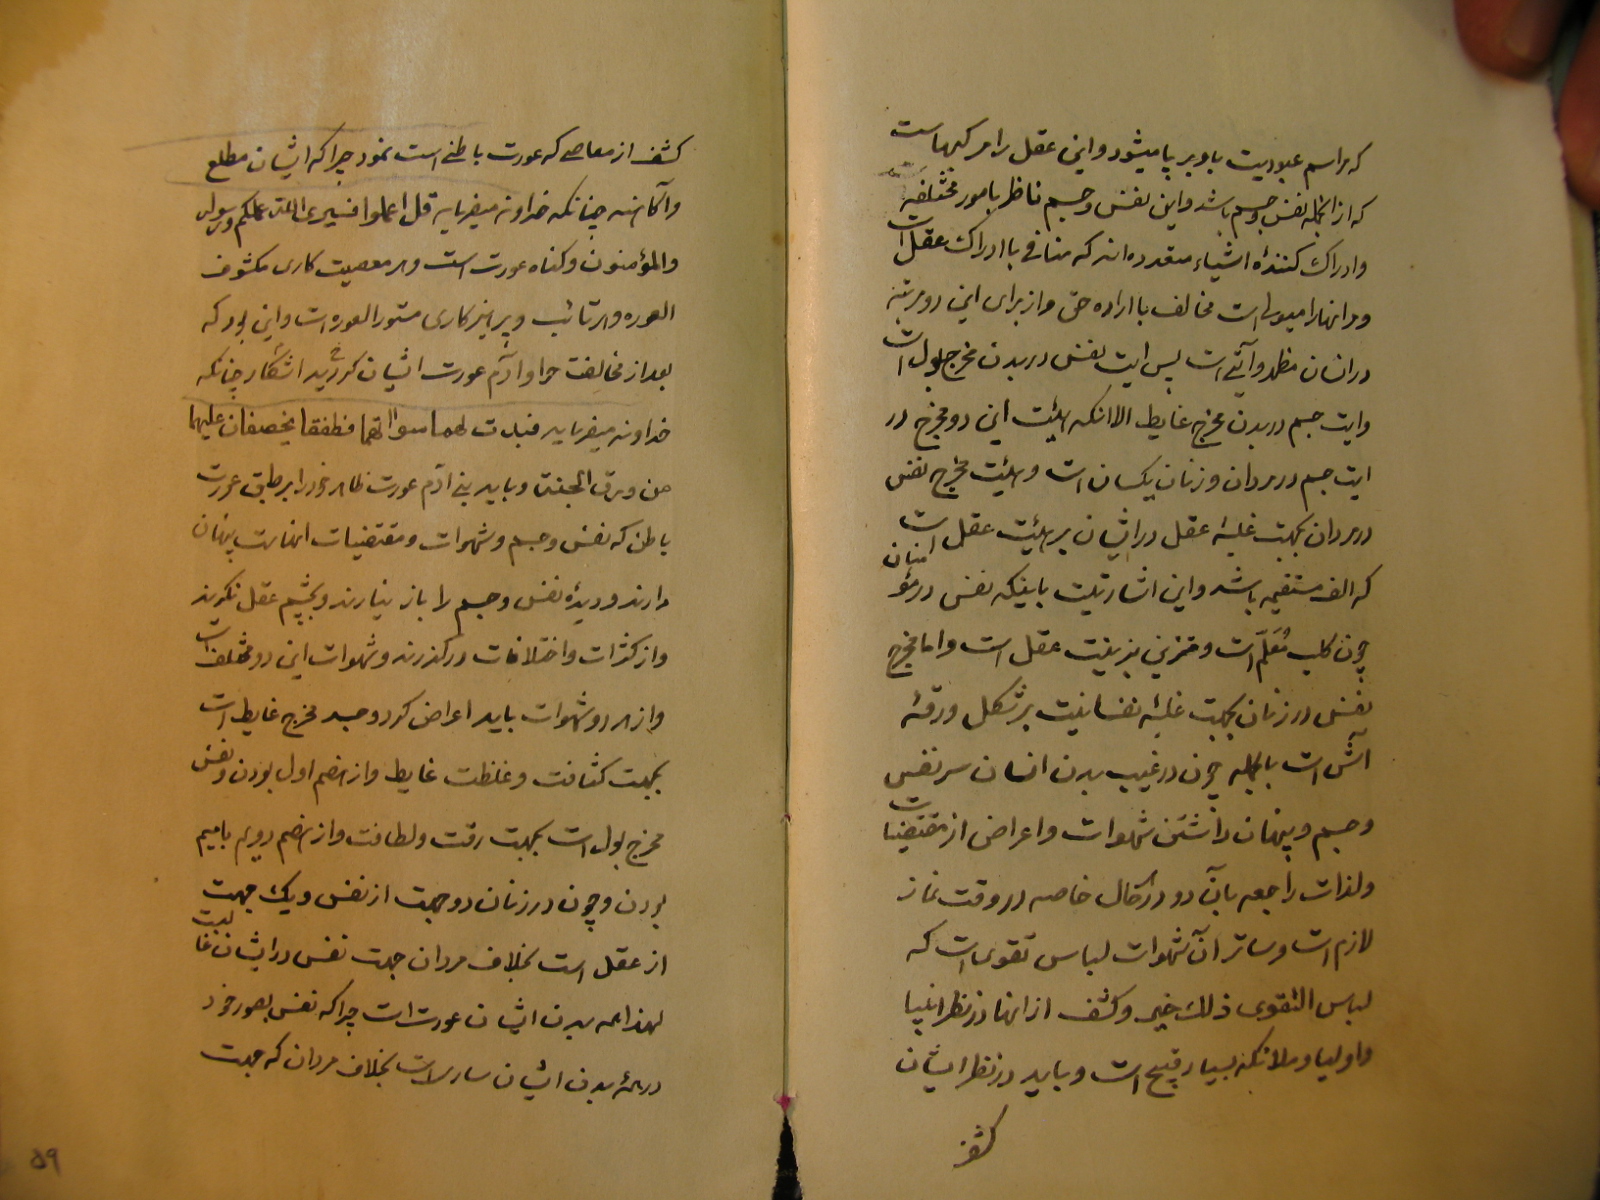 که مراسم عبودیت باو بر پا میشود و این عقل را مرکبهاست
که از انجمله نفس و جسم باشد و این نفس و جسم ناظر بامور مختلفه
و ادراک کنندهٔ اشیاء متعدده‌اند که منافی با ادراک عقل است
و مر انها را میولی است مخالف با اراده حق و از برای این دو مرتبه
در انسان مظهر و آیتی است پس ایت نفس در بدن مخرج بول است
و ایت جسم در بدن مخرج غایط الا انکه هیئت این دو مخرج در
ایت جسم در مردان و زنان یکسان است و هیئت مخرج نفس
در مردان بجهت غلبهٔ عقل در ایشان بر هیئت عقل است
که الف مستقیمه باشد و این اشارتیست باینکه نفس در مؤمنان
چون کلب مُعَلَّم است و متزین بزینت عقل است و اما مخرج
نفس در زنان بجهت غلبهٔ نفسانیت بر شکل ورقهٔ
آس است بالجمله چون در غیب بدن انسان سر نفس
و جسم و پنهان داشتن شهوات و اعراض از مقتضیات
و لذات راجعه بآن دو در کل حال خاصه در وقت نماز
لازم است و ساتر آن شهوات لباس تقوی است که
لباس التقوی ذلک خیر و کشف از انها در نظر انبیا
و اولیا و ملائکه بسیار قبیح است و باید در نظر ایشان
کشف
کشف از معاصی که عورت باطنی است نمود چرا که ایشان مطلع
و آگاهند چنانکه خداوند میفرماید قل اعملوا فسیری الله عملکم و رسوله
والمؤمنون و گناه عورت است و هر معصیت کاری مکشوف
العوره و هر تائب و پرهیزکاری مستور العوره است و این بود که
بعد از مخالفت حوا و آدم عورت ایشان گردید اشکار چنانکه
خداوند میفرماید فبدت لهما سوآتهما فطفقا یخصفان علیهما
من ورق الجنة و باید بنی آدم عورت ظاهر خود را بر طبق عورت
باطن که نفس و جسم و شهوات و مقتضیات انهاست پنهان
دارند و دیدهٔ نفس و جسم را باز نیارند و بچشم عقل نگرند
و از کثرات و اختلافات در گذرند و شهوات این دو مختلف است
و از هر دو شهوات باید اعراض کرد و جسد مخرج غایط است
بجهت کثافت و غلظت غایط و از هضم اول بودن و نفس
مخرج بول است بجهت رقت و لطافت و از هضم دویم یا سیم
بودن و چون در زنان دو جهت از نفس و یک جهت
از عقل است بخلاف مردان جهت نفس در ایشان غالبست
لهذا همه بدن ایشان عورت است چرا که نفس بصور خود
در همهٔ بدن ایشان ساری است بخلاف مردان که جهت
۵۹